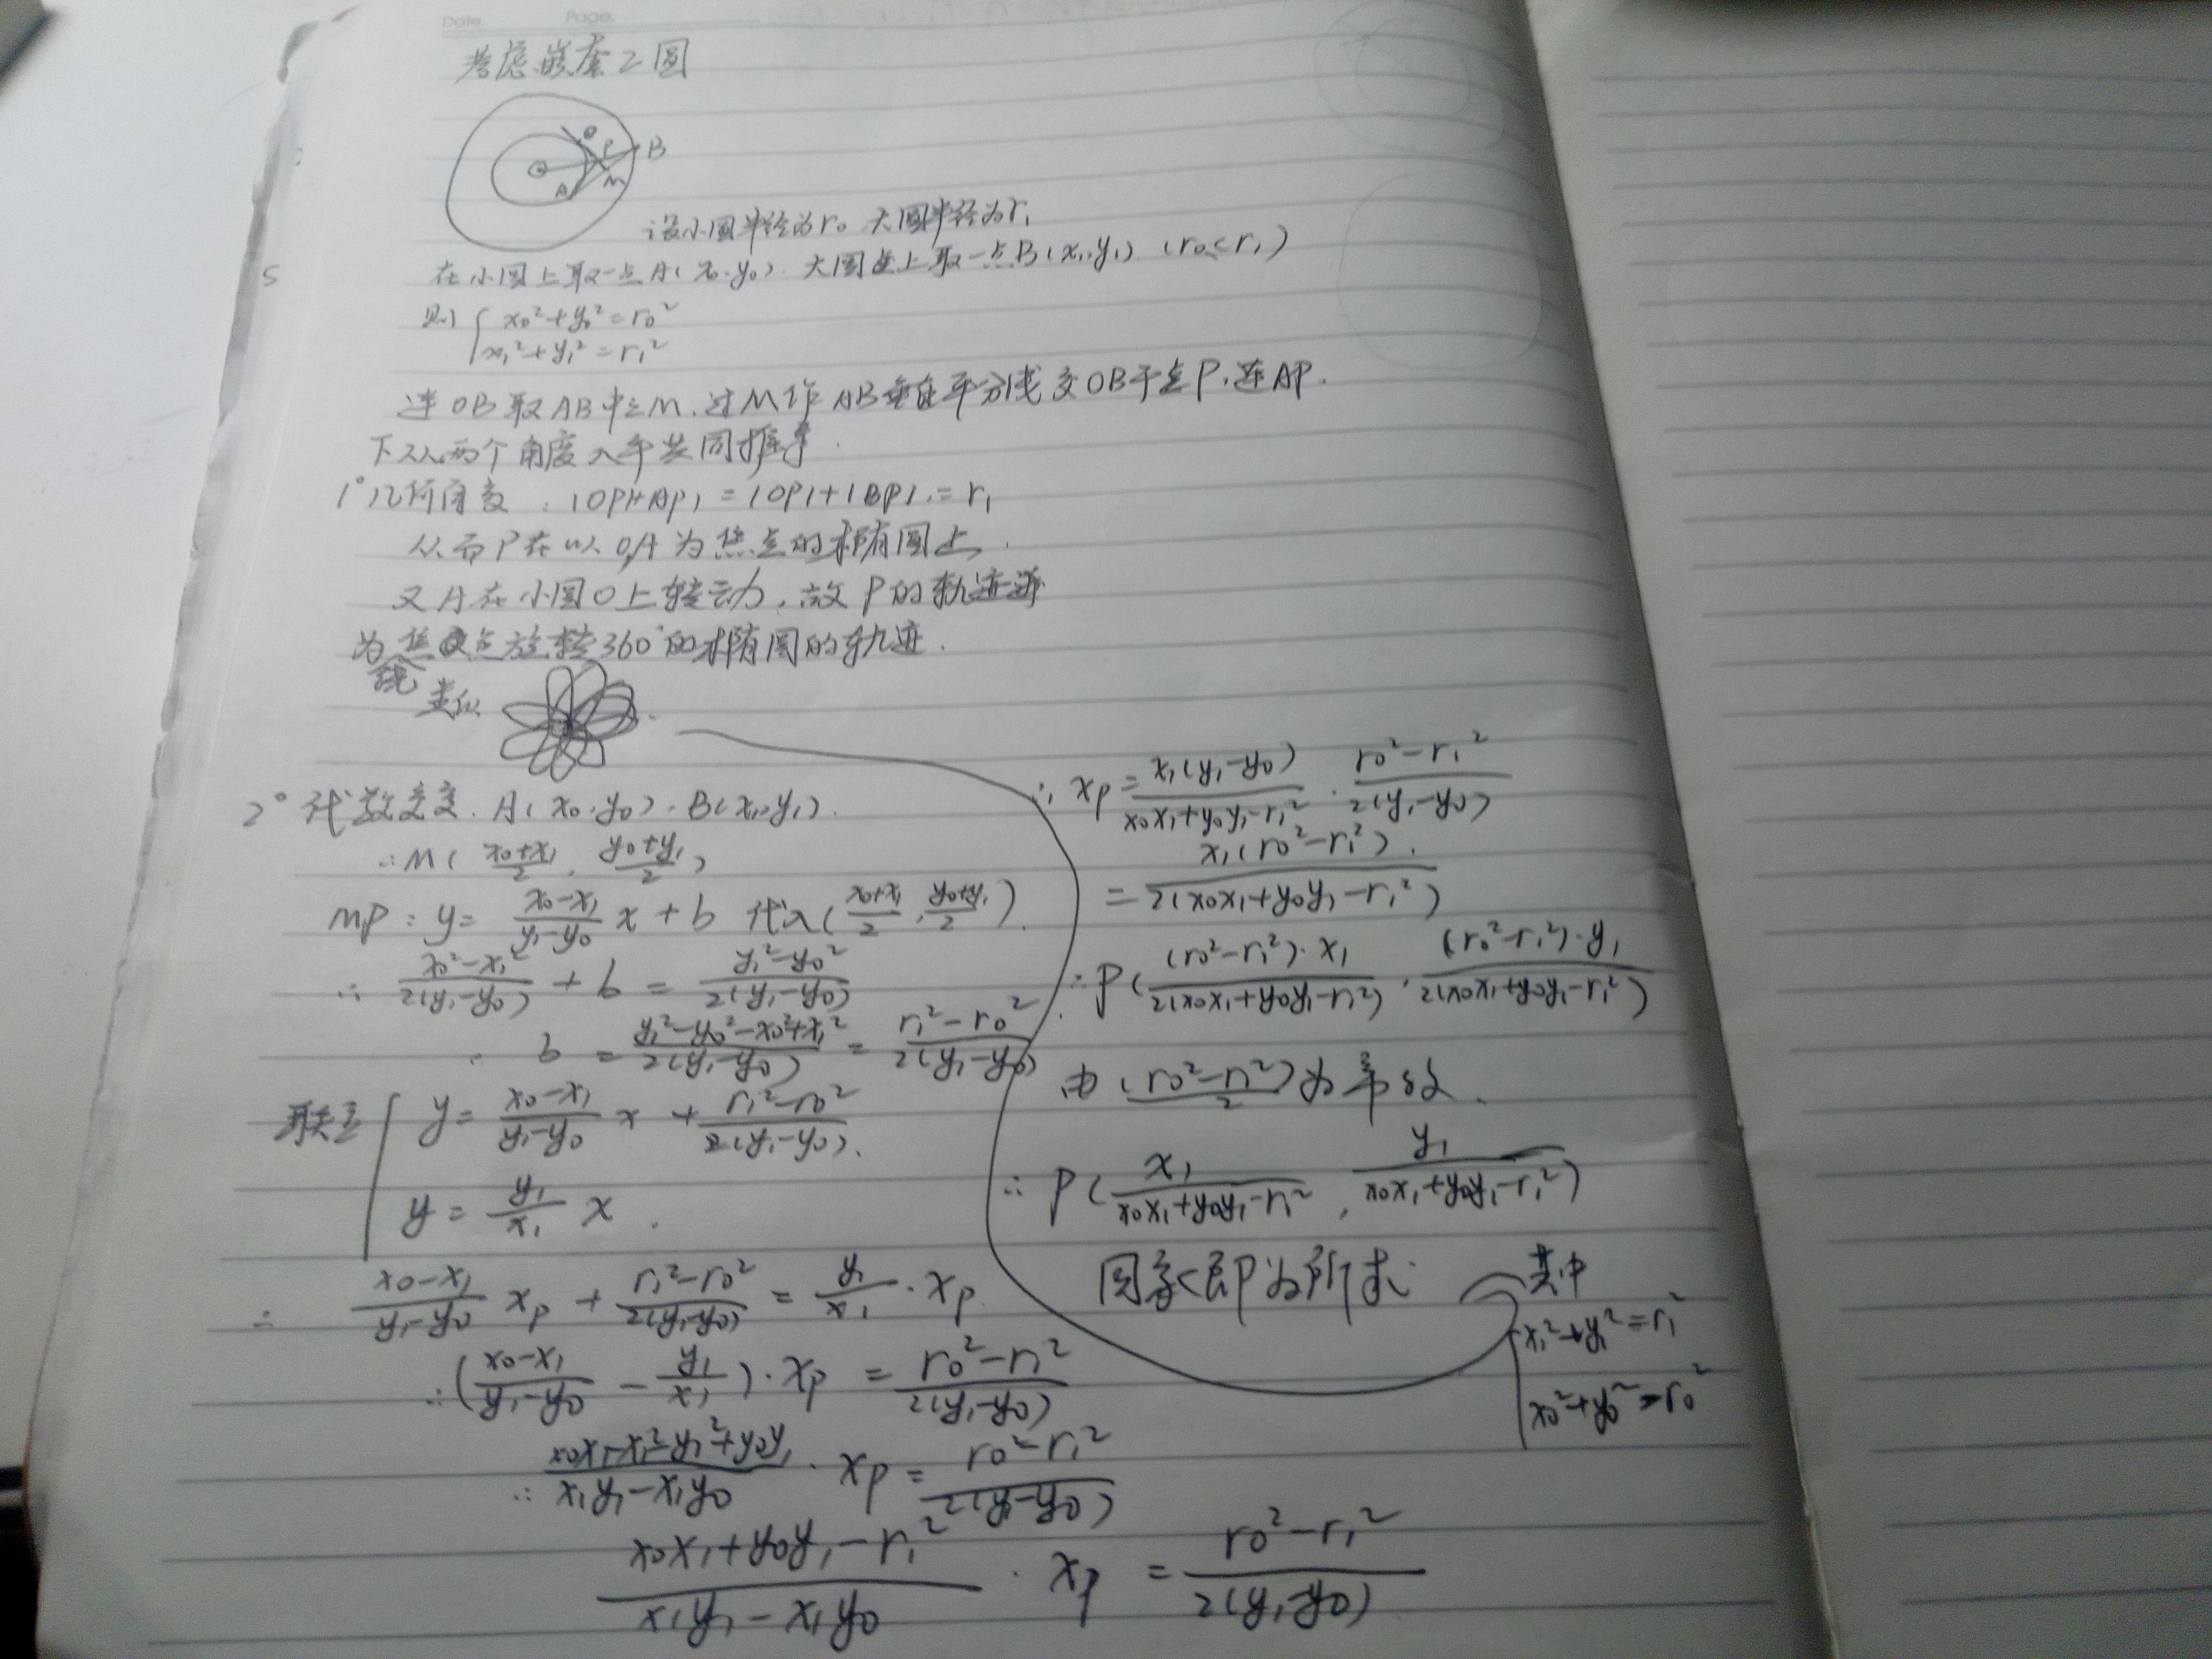 Date. Page.
考虑嵌套2圆
O P B
A M
设小圆半径为r₀ 大圆半径为r₁
在小圆上取一点A(x₀,y₀). 大圆上取一点B(x₁,y₁) (r₀<r₁)
则{x₀²+y₀²=r₀²
x₁²+y₁²=r₁²
连OB取AB中点M.过M作AB垂直平分线交OB于点P,连AP.
下从两个角度入手共同推导.
1°几何角度:|OP|+|AP|=|OP|+|BP|=r₁
从而P在以O,A为焦点的椭圆上.
又A在小圆O上转动,故P的轨迹
为绕焦点旋转360°的椭圆的轨迹.
类似
2°代数角度.A(x₀,y₀).B(x₁,y₁).
∴M(\frac{x₀+x₁}{2},\frac{y₀+y₁}{2})
MP:y=\frac{x₀-x₁}{y₁-y₀}x+b 代入(\frac{x₀+x₁}{2},\frac{y₀+y₁}{2}).
∴\frac{x₀²-x₁²}{2(y₁-y₀)}+b=\frac{y₁²-y₀²}{2(y₁-y₀)}
b=\frac{y₁²-y₀²-x₀²+x₁²}{2(y₁-y₀)}=\frac{r₁²-r₀²}{2(y₁-y₀)}
联立{y=\frac{x₀-x₁}{y₁-y₀}x+\frac{r₁²-r₀²}{2(y₁-y₀)}.
y=\frac{y₁}{x₁}x.
∴\frac{x₀-x₁}{y₁-y₀}xₚ+\frac{r₁²-r₀²}{2(y₁-y₀)}=\frac{y₁}{x₁}·xₚ
∴(\frac{x₀-x₁}{y₁-y₀}-\frac{y₁}{x₁})·xₚ=\frac{r₀²-r₁²}{2(y₁-y₀)}
∴\frac{x₀x₁-x₁²-y₁²+y₀y₁}{x₁y₁-x₁y₀}·xₚ=\frac{r₀²-r₁²}{2(y₁-y₀)}
\frac{x₀x₁+y₀y₁-r₁²}{x₁y₁-x₁y₀}·xₚ=\frac{r₀²-r₁²}{2(y₁-y₀)}
∴xₚ=\frac{x₁(y₁-y₀)}{x₀x₁+y₀y₁-r₁²}·\frac{r₀²-r₁²}{2(y₁-y₀)}
=\frac{x₁(r₀²-r₁²)}{2(x₀x₁+y₀y₁-r₁²)}
∴P(\frac{(r₀²-r₁²)·x₁}{2(x₀x₁+y₀y₁-r₁²)},\frac{(r₀²-r₁²)·y₁}{2(x₀x₁+y₀y₁-r₁²)})
由\frac{(r₀²-r₁²)}{2}为常数.
∴P(\frac{x₁}{x₀x₁+y₀y₁-r₁²},\frac{y₁}{x₀x₁+y₀y₁-r₁²})
图象即为所求
其中
{x₁²+y₁²=r₁²
x₀²+y₀²=r₀²